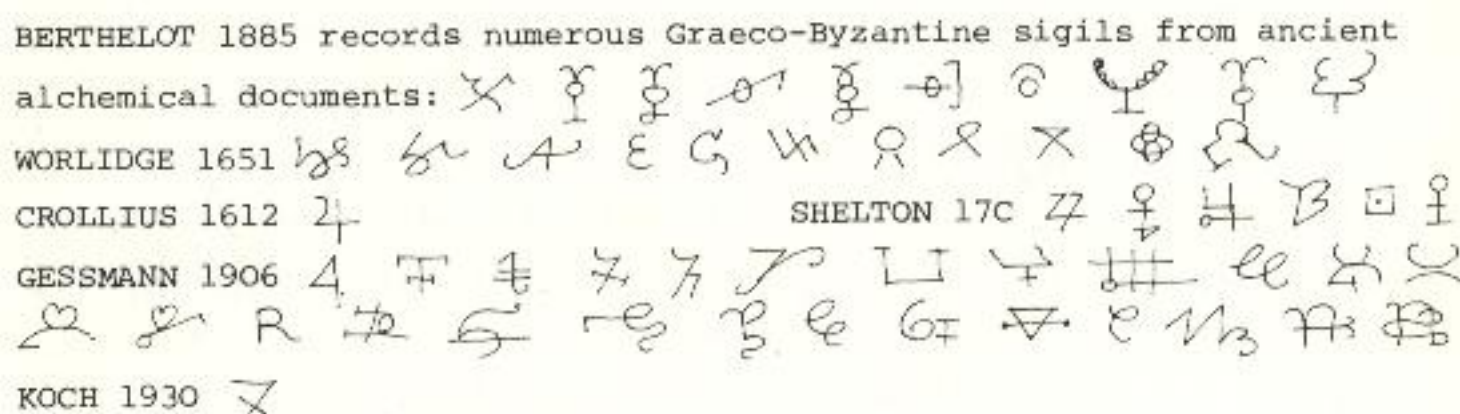 BERTHELOT 1885 records numerous Graeco-Byzantine sigils from ancient
alchemical documents:
WORLIDGE 1651
CROLLIUS 1612 SHELTON 17C
GESSMANN 1906
KOCH 1930